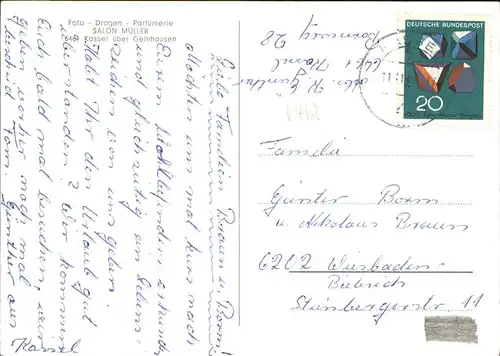 Foto - Drogen - Parfümerie
SALON MÜLLER
6461 Kassel über Gelnhausen
Liebe Familien Braun u. Borm!
Möchten uns mal kurz nach
Eurem Wohlbefinden erkundigen
und gleichzeitig ein Lebens-
zeichen von uns geben.
Habt Ihr den Urlaub gut
überstanden? Wir kommen
Euch bald mal besuchen,
geben vorher noch mal
Bescheid. Fam. Günther aus
Kassel
Abs. K. Günther
6461 Kassel
28
DEUTSCHE BUNDESPOST
20
Familie
Günter Borm
u. Nikolaus Braun
6202 Wiesbaden-
Biebrich
Steinbergerstr. 11